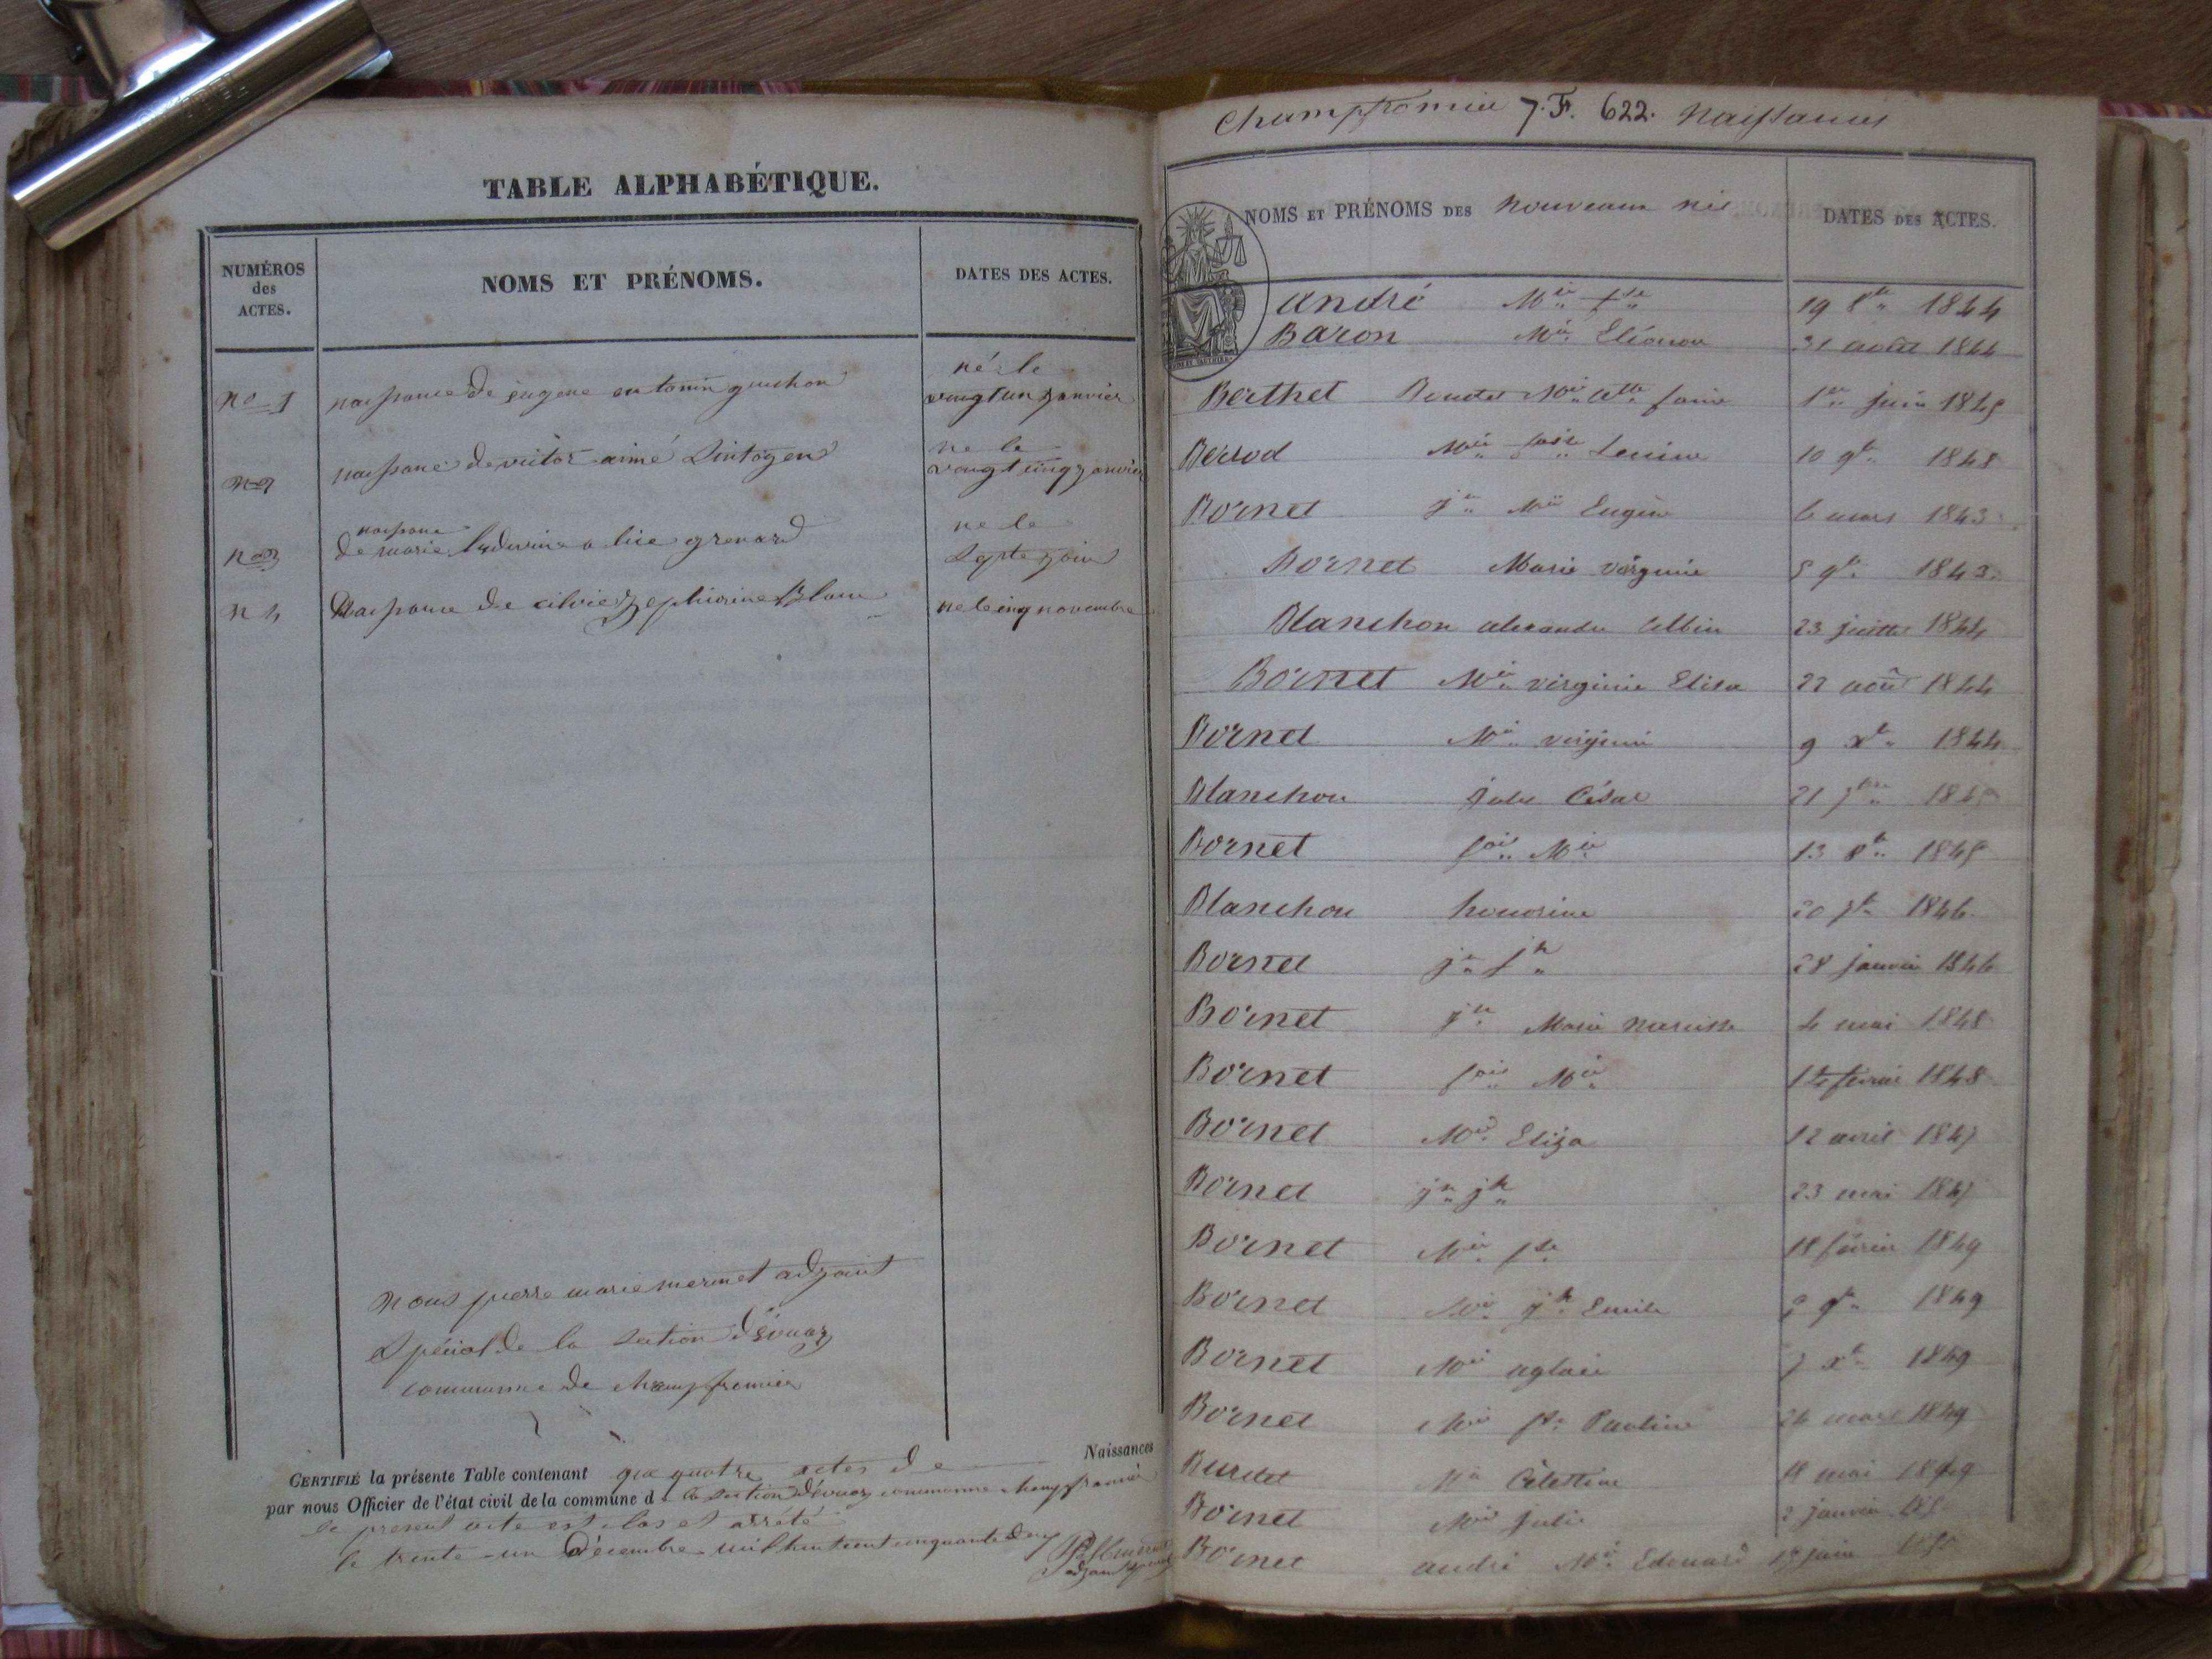 TABLE ALPHABÉTIQUE.
NUMÉROS
des
ACTES.
NOMS ET PRÉNOMS.
DATES DES ACTES.
né le
no 1 naissance de eugene en tonin guichon vingt un janvier
ne le
naissance de victor aimé
vingt cinq janvier
naissance ne le
de marie alice grenard
n 4 Naissance de silvie zephirine Blanc ne le cinq novembre
nous pierre marie mermet adjoint
spécial de la section d'évuaz
commune de champfromier
CERTIFIÉ la présente Table contenant quatre actes de Naissances
par nous Officier de l'état civil de la commune d la section d'évuaz commune champfromier
le present acte est clos et arrété
le trente-un décembre mil huit cent cinquante
Champfromier 7.F. 622. Naissances
NOMS ET PRÉNOMS DES nouveaux nés DATES DES ACTES.
André Mie fse 19 8bre 1844
Baron Mie Eléonor 31 août 1844
Berthet Mie 1er juin 1845
Berrod Mie 10 9bre 1848
Bornet jn Mie Eugène 6 mars 1843
Bornet Marie virginie 5 9bre 1843
Blanchon alexandre albin 23 juillet 1844
Bornet Mie virginie Elisa 22 août 1844
Bornet Mie virginie 9 xbre 1844
Blanchon jules César 21 7bre 1845
Bornet fois Mie 13 8bre 1845
Blanchon honorine 20 7bre 1846
Bornet jn jh 28 janvier 1846
Bornet jn Marie narcisse 4 mai 1848
Bornet fois Mie février 1848
Bornet Mie Eliza 12 avril 1847
Bornet jn jh 23 mai 1847
Bornet Mie fse 18 février 1849
Bornet Mie jh Emile 9bre 1849
Bornet Mie aglaée 7 xbre 1849
Bornet Mie fse Pauline 24 mars 1849
Mie Célestine 18 mai 1849
Bornet Mie julie 2 janvier
Bornet andré Mie Edouard juin 1850